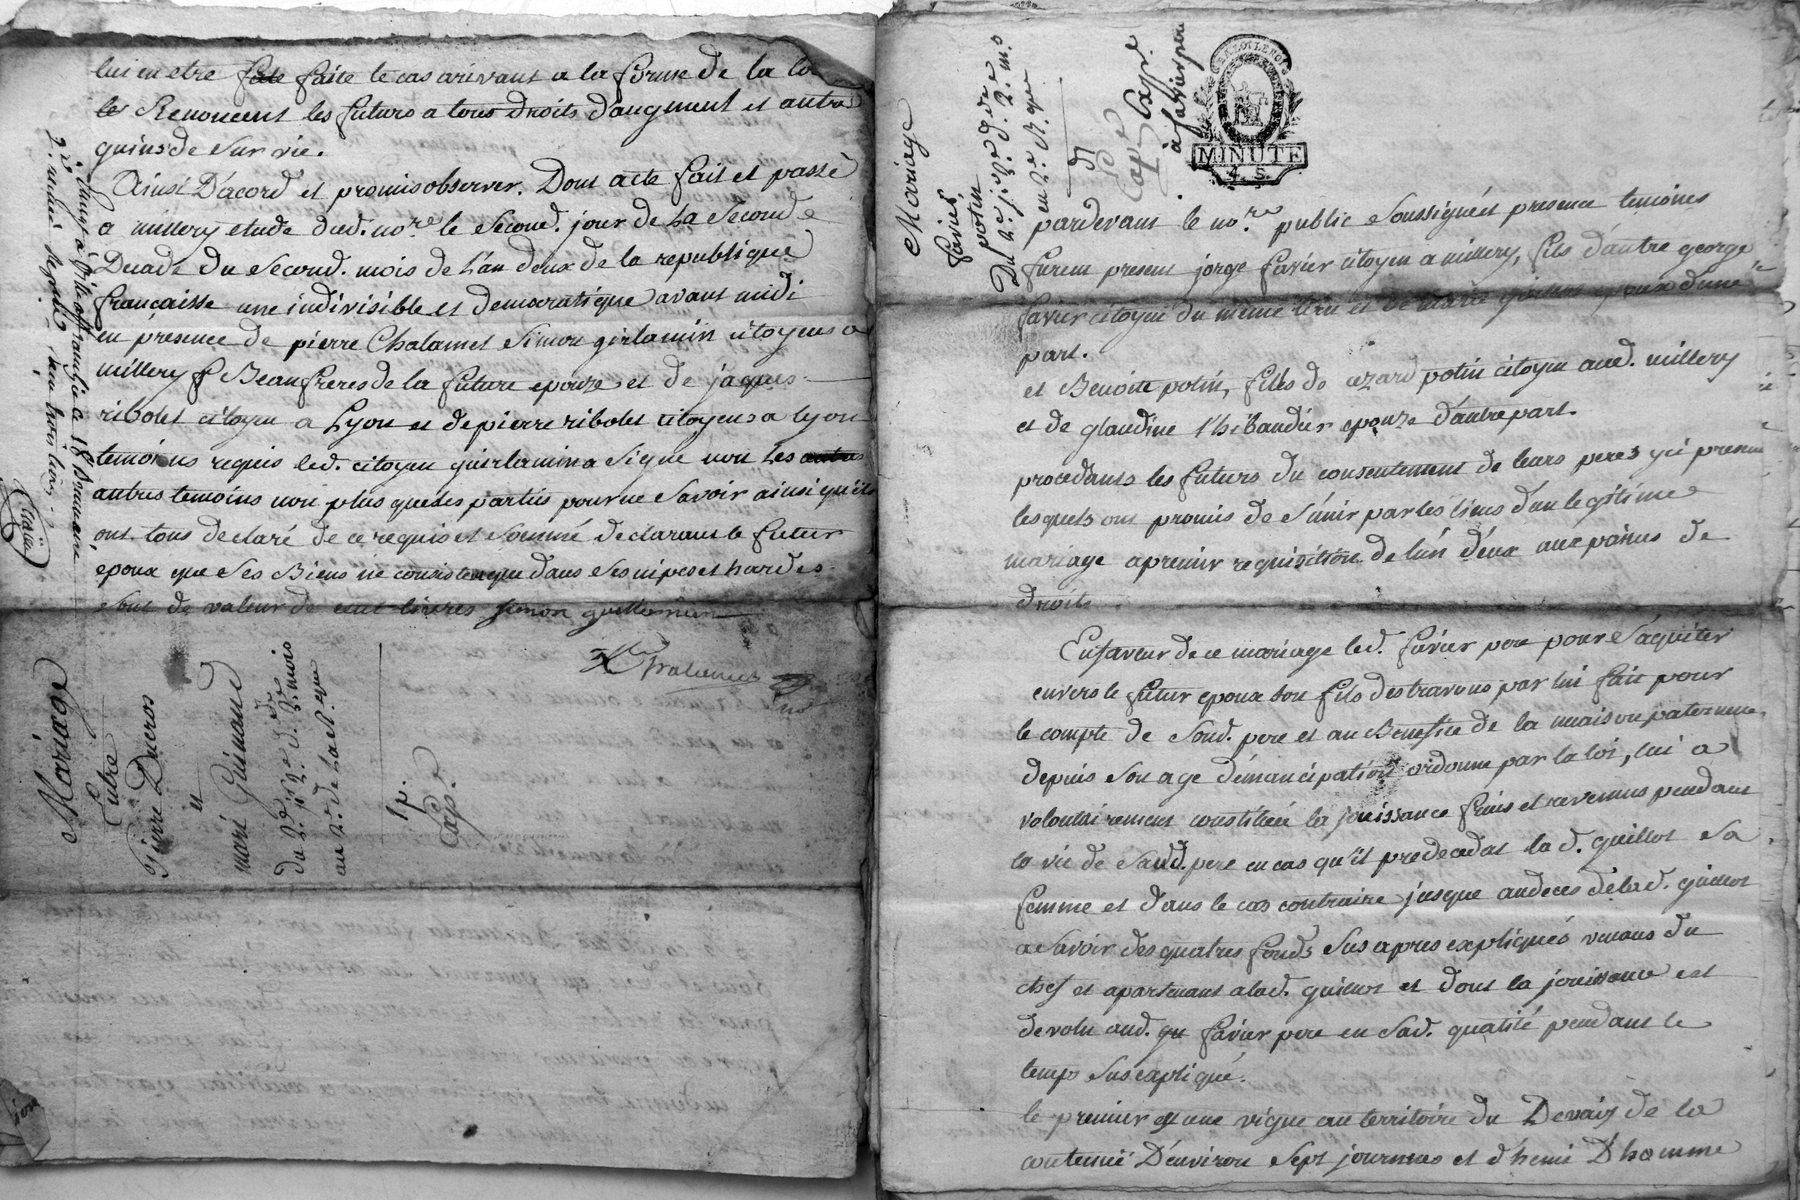 lui en etre fete faite le cas arivant a la forme de la loi
les Renoncent les futurs a tous droits d'augment et autre
gains de survie.
Ainsi D'acord et promis observer. Dont acte fait et passé
a millery etude dud. no.re le second. jour de La Seconde
Decade du Second. mois de L'an deux de la republique
francaisse une indivisible et democratique avant midi
en présence de pierre Chalamet Simon girlamin citoyens a
millery Beaufreres de la future epouze et de jaques
ribolet citoyen a Lyon et de pierre ribolet citoyens a lyon
temoins requis led. citoyen guirlamin a Signé non Les autres
autres temoins non plus que les partiis pour ne Savoir ainsi qu'ils
ont tous declaré de ce requis et Sommé declarant le futur
epoux que Ses Biens ne consistent que dans Ses nipes et hardes
Sont de valeur de cent livres Simon guillermin
no.re
Enr. à affranchie ce 18 Brumaire
2.e
Mariage
Entre
Pierre Ducros
et
marie Guinand
du 2.e j. 2.e d.de 2.e mois
an 2.e de La R.que
1 p.
Exp.
Mariage
favier
potin
Du 2.e j. 2.e d.de 2.e m.s
en 2.e R.que
Exp.e
à favier pere
MINUTE
4. S.
pardevant le no.re public Soussigné et presence temoins
furent present jorge favier citoyen a millery, fils d'autre george
favier citoyen du même lieu et de epoux d'une
part.
et Benoite potin, filles de cezard potin citoyen aud. millery
et de glaudine thibaudier epouze d'autre part.
procedants les futurs du consentement de leurs peres yci present
lesquels ont promis de S'unir par les liens d'un legitime
mariage a premier requisition de l'un d'eux aux paines de
droits.
En faveur de ce mariage led. favier pere pour S'aquiter
envers le futur epoux Son fils des travaus par lui fait pour
le compte de Sond. pere et au Benefice de la maison paternelle
depuis Son age d'emancipation ordonné par la loi, lui a
volontairement constitué la jouissance fruis et revenus pendant
la vie de Saud. pere en cas qu'il predecedat la d. guillot Sa
femme et dans le cas contraire jusque au deces de lad. guillot
a Savoir des quatres fonds Sus apres expliqués venans du
chef et apartenans a lad. guillot et dont la jouissance est
devolu aud. favier pere en Sad. qualité pendant le
temps Sus expliqué.
le premier est une vigne au territoire du Devais de la
contenue D'environ Sept journées et d'hemi D'homme